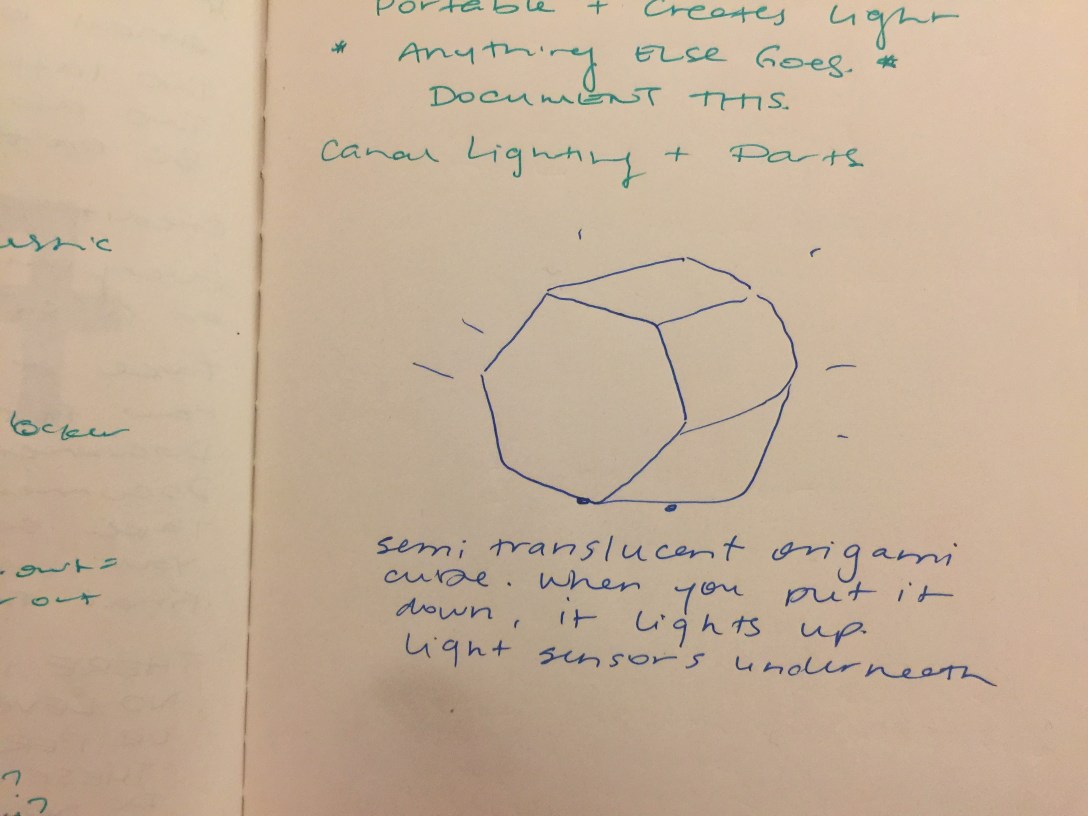 Portable + Creates light
* Anything ELSE Goes. *
DOCUMENT THIS.
Canal Lighting + Parts
semi translucent origami
cube. when you put it
down, it lights up.
light sensors underneath
locker
out =
out
?
?